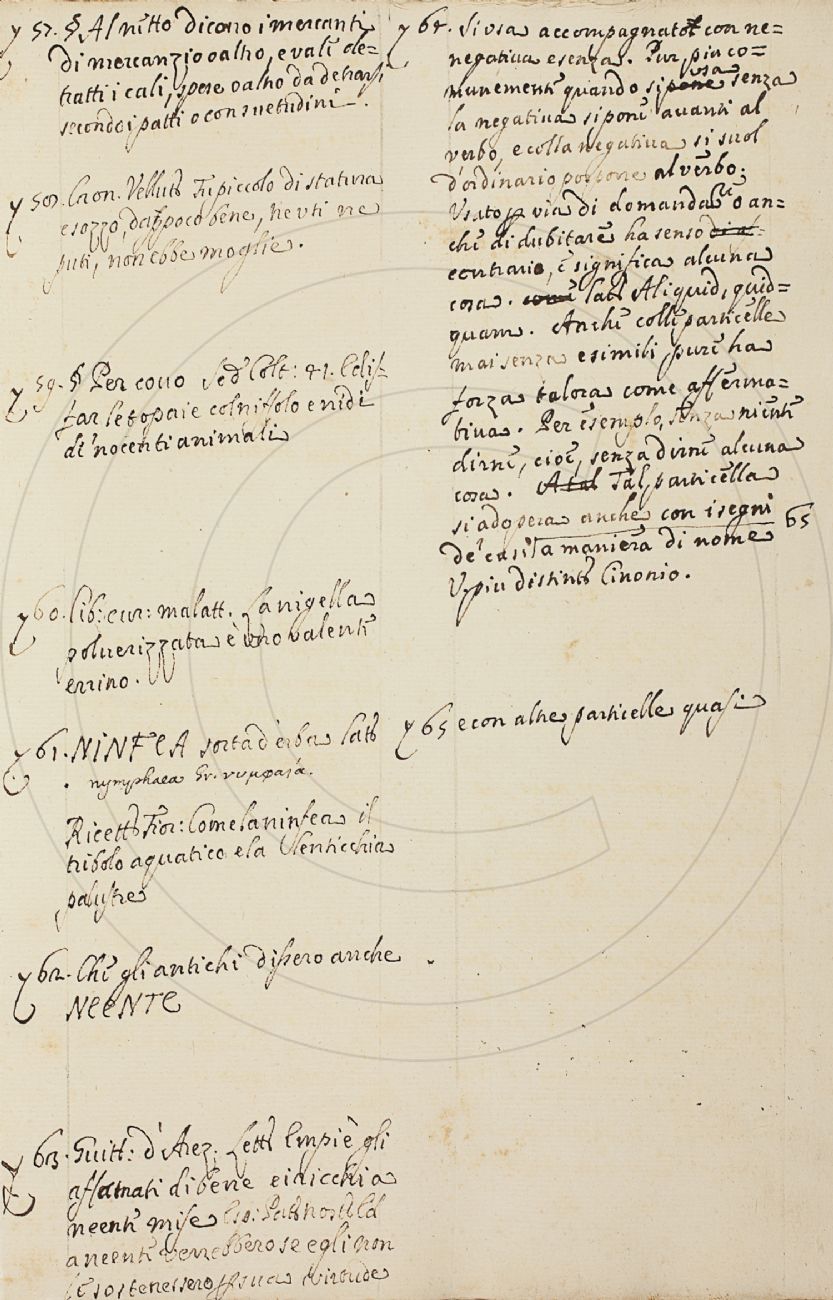 57. § Al nitto dicono i mercanti
di mercanzio o altro, e vale de=
tratti i cali, spese o altro da detrarsi
secondo i patti o consuetudini —.
58. Cron. Vellut. Fu piccolo di statura
e sozzo, dappoco bene, ne vti ne
puti, non ebbe moglie.
59. § Per covo Sed. Colt: 41. E dis=
far le topaie col niffolo e nidi
di nocenti animali
60. Lib: cur: malatt. La nigella
poluerizzata è uno valente
errino.
61. NINFEA sorta d'erba lat.
nymphaea Gr. νυμφαία.
Ricett. Fior: Come la ninfea il
tribolo aquatico e la lenticchia
palustre
62. Che gli antichi dissero anche
NEENTE
63. Guitt: d'Arez. Lett. Empiè gli
affamati di bene e i ricchi a
neente mise Esp: Patnost. Ed
a neente verrebbero se egli non
le sostenesse p sua virtude
64. Si usa accompagnato con ne=
negatiua e senza. Pur piu co=
munemente quando si usa senza
la negatiua si pone auanti al
verbo, e colla negatiua si suol
d'ordinario posporre al verbo.
Usato p via di domandare o an=
che di dubitare ha senso
contrario, e significa alcuna
cosa. lat. Aliquid, quid=
quam. Anche colle particelle
mai senza e simili, pure ha
forza talora come afferma=
tiua. Per esempio, senza niente
dirne, cioè, senza dirne alcuna
cosa. Tal particella
si adopera anche con i segni 65
de' casi a maniera di nome
V. piu distint. Cinonio.
65 e con altre particelle quasi